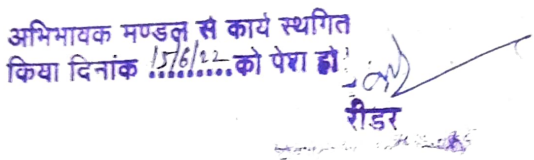 अभिभावक मण्डल से कार्य स्थगित
किया दिनांक 15/6/22 को पेश हो
रीडर